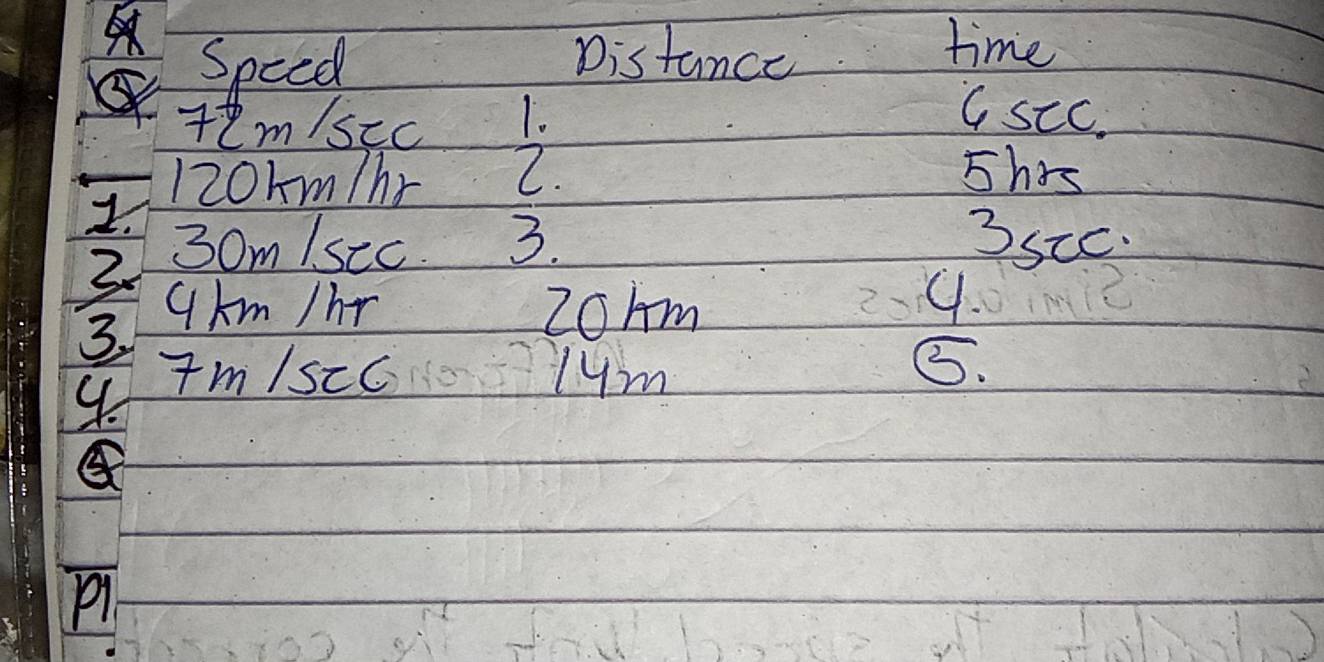 Speed Distance time
72m/sec 1. 6 sec.
120km/hr 2. 5hrs
30m/sec. 3. 3sec.
4km/hr 20km 4.
7m/sec 14m 5.
1.
2.
3.
4.
P1